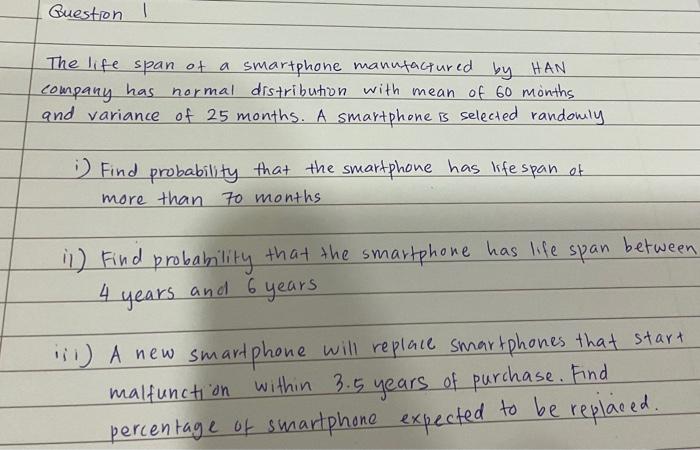 Question 1
The life span of a smartphone manufactured by HAN
company has normal distribution with mean of 60 months
and variance of 25 months. A smartphone is selected randomly
i) Find probability that the smartphone has life span of
more than 70 months
ii) Find probability that the smartphone has life span between
4 years and 6 years
iii) A new smartphone will replace smartphones that start
malfunction within 3.5 years of purchase. Find
percentage of smartphone expected to be replaced.